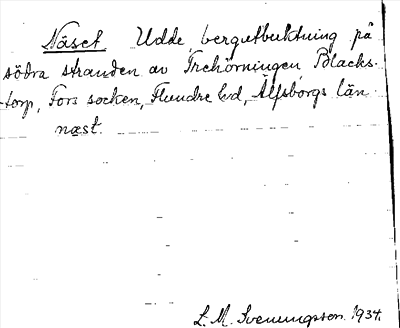 Näset Udde, bergutbuktning på
södra stranden av Trehörningen, Blacks-
torp, Fors socken, Flundre hd, Älfsborgs län.
næst.
L. M. Svenungsson 1934.